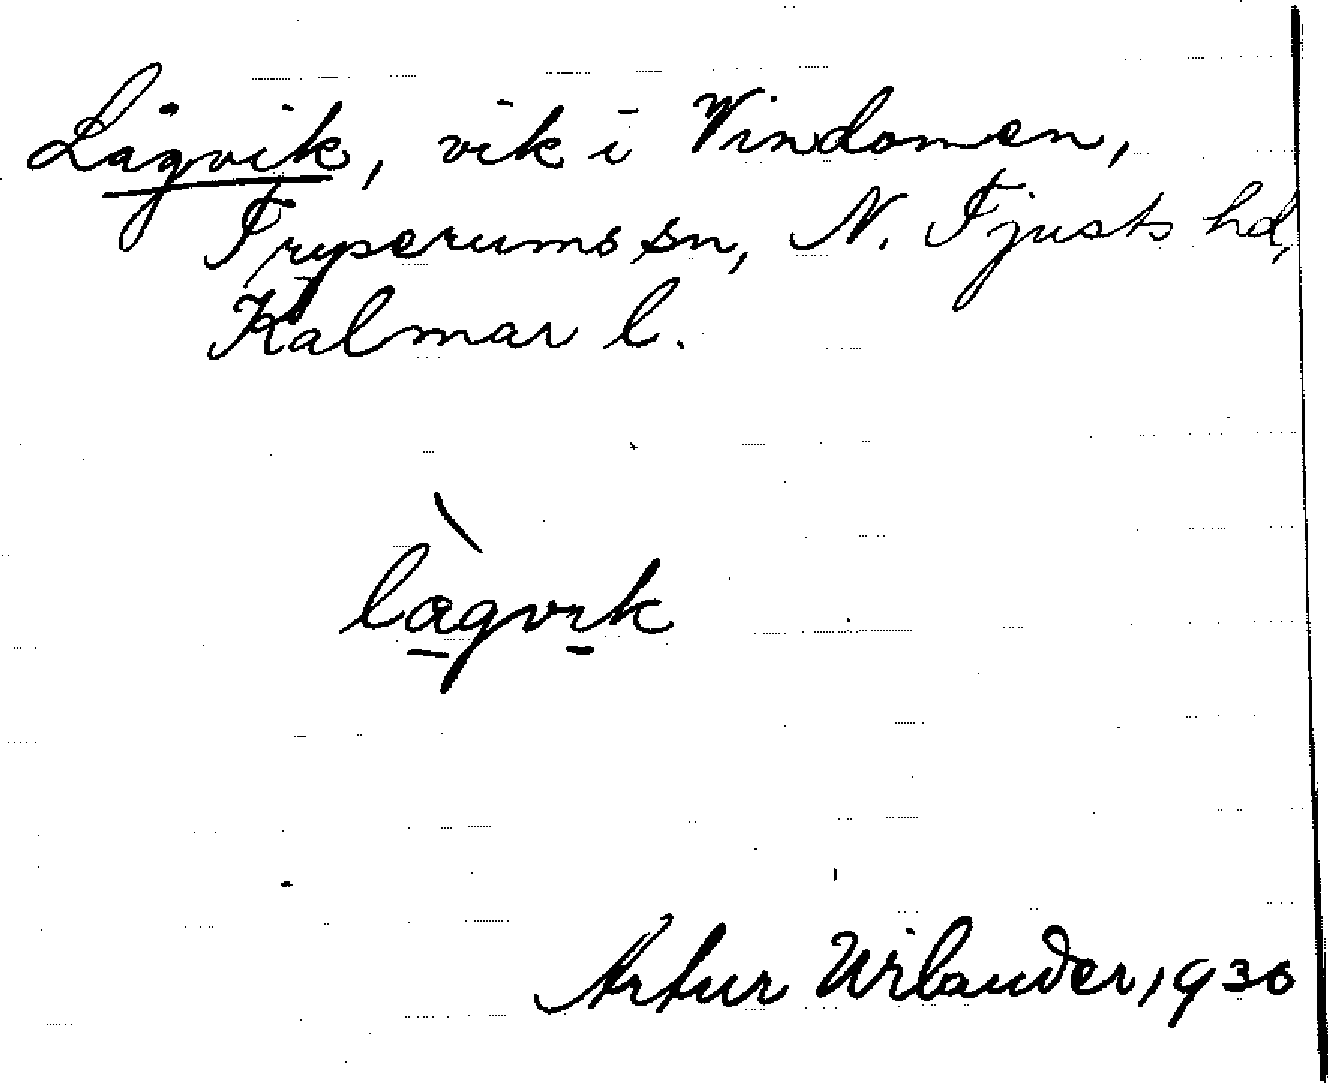 Lågvik, vik i Vindomen,
Tryserums sn, N. Tjusts hd,
Kalmar l.
làgvik
Artur Wilander, 1930